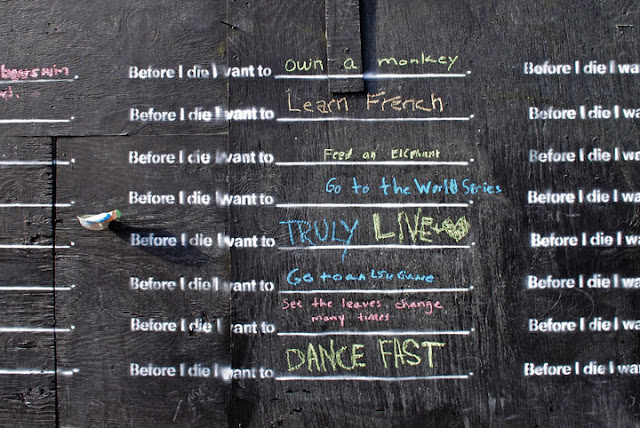 bears win Before I die I want to own a monkey. Before I die I wa
Before I die I want to Learn French. Before I die I wa
Before I die I want to Feed an Elephant. Before I die I wa
Before I die I want to Go to the World Series. Before I die I wa
Before I die I want to TRULY LIVE. Before I die I wa
Before I die I want to Go to an LSU Game. Before I die I wa
Before I die I want to See the leaves change
many times. Before I die I wa
Before I die I want to DANCE FAST. Before I die I wa